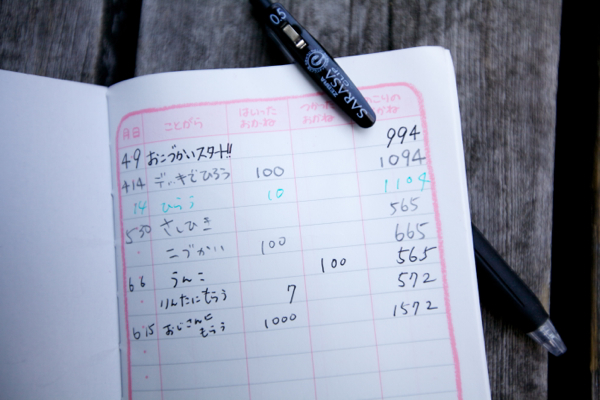 0.5
ZEBRA
SARASA
CLIP
月日 ことがら はいった おかね つかった おかね のこりの おかね
4 9 おこづかいスタート!! 994
4 14 デッキでひろう 100 1094
14 ひろう 10 1104
5 30 さしひき 565
〃 こづかい 100 665
6 6 うんこ 100 565
〃 りんたにもらう 7 572
6 15 おじさんにもらう 1000 1572